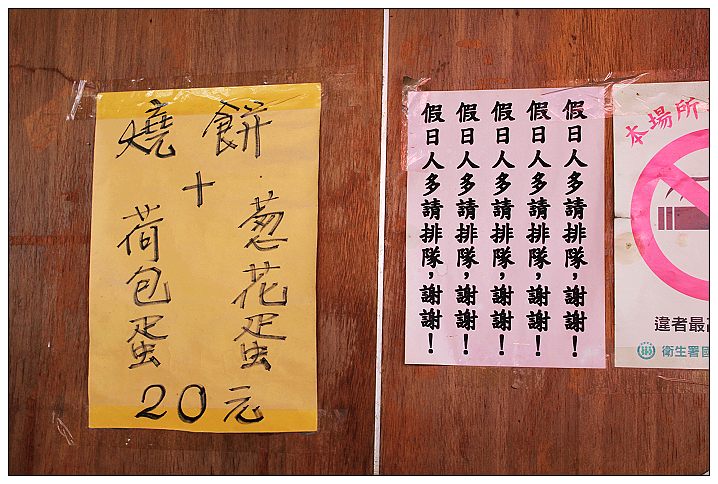 燒餅
+
荷包蛋
葱花蛋
20元
假日人多請排隊，謝謝！
假日人多請排隊，謝謝！
假日人多請排隊，謝謝！
假日人多請排隊，謝謝！
假日人多請排隊，謝謝！
本場所
違者最高
衛生署國